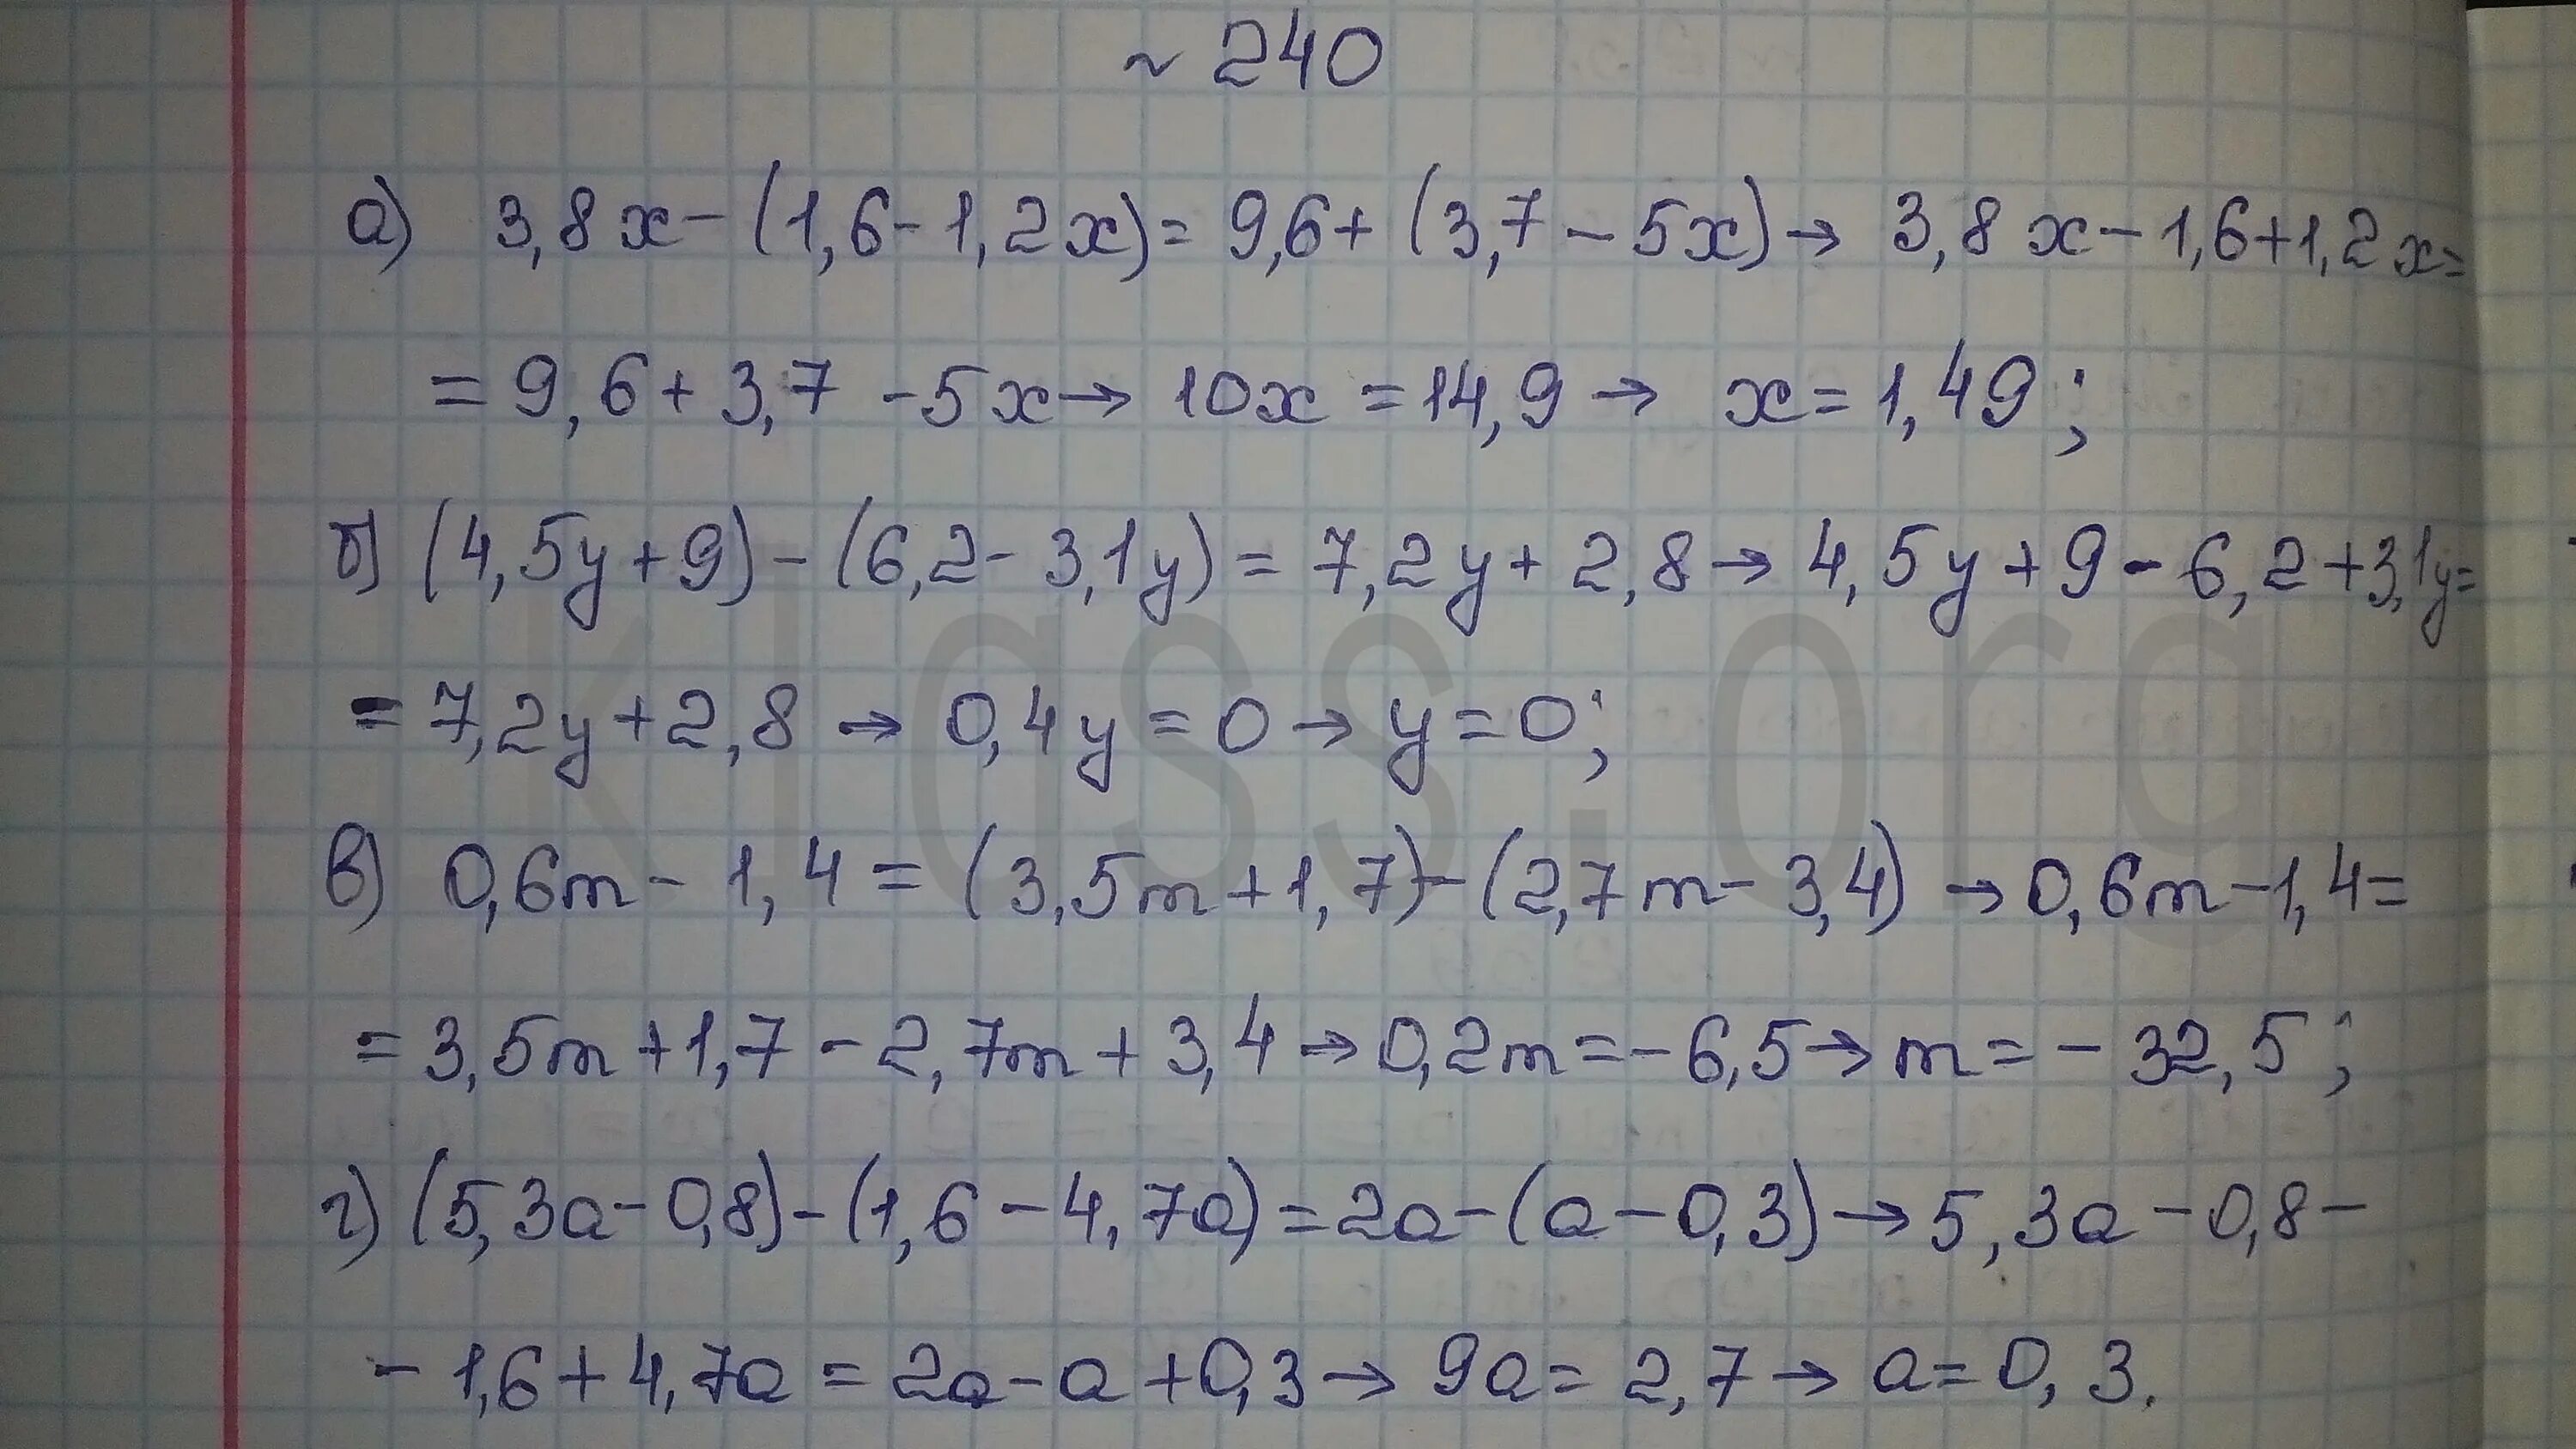 ~ 240
а) 3,8x-(1,6-1,2x)=9,6+(3,7-5x)→3,8x-1,6+1,2x=
=9,6+3,7-5x→10x=14,9→x=1,49;
б) (4,5y+9)-(6,2-3,1y)=7,2y+2,8→4,5y+9-6,2+3,1y=
=7,2y+2,8→0,4y=0→y=0;
klass.org
в) 0,6m-1,4=(3,5m+1,7)-(2,7m-3,4)→0,6m-1,4=
=3,5m+1,7-2,7m+3,4→0,2m=-6,5→m=-32,5;
г) (5,3a-0,8)-(1,6-4,7a)=2a-(a-0,3)→5,3a-0,8-
-1,6+4,7a=2a-a+0,3→9a=2,7→a=0,3.